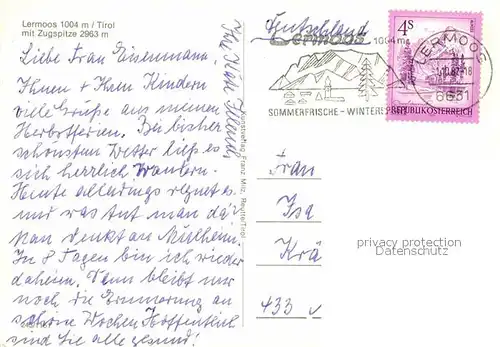 Lermoos 1004 m / Tirol
mit Zugspitze 2963 m
Liebe Frau Eisenmann,
Ihnen + Ihren Kindern
viele Grüße aus meinen
Herbstferien. Bei bisher
schönstem Wetter ließ es
sich herrlich wandern.
Heute allerdings regnet es
und was tut man da?
Man denkt an Mülheim.
In 8 Tagen bin ich wieder
daheim. Dann bleibt nur
noch die Erinnerung an
schöne Wochen. Hoffentlich
sind Sie alle gesund!
Ihre
Kunstverlag Franz Milz, Reutte/Tirol
Deutschland
Lermoos 1004m
SOMMERFRISCHE - WINTERSP
4S
REPUBLIK ÖSTERREICH
LERMOOS
6631
Frau
Isa
Krä
433
privacy protection
Datenschutz